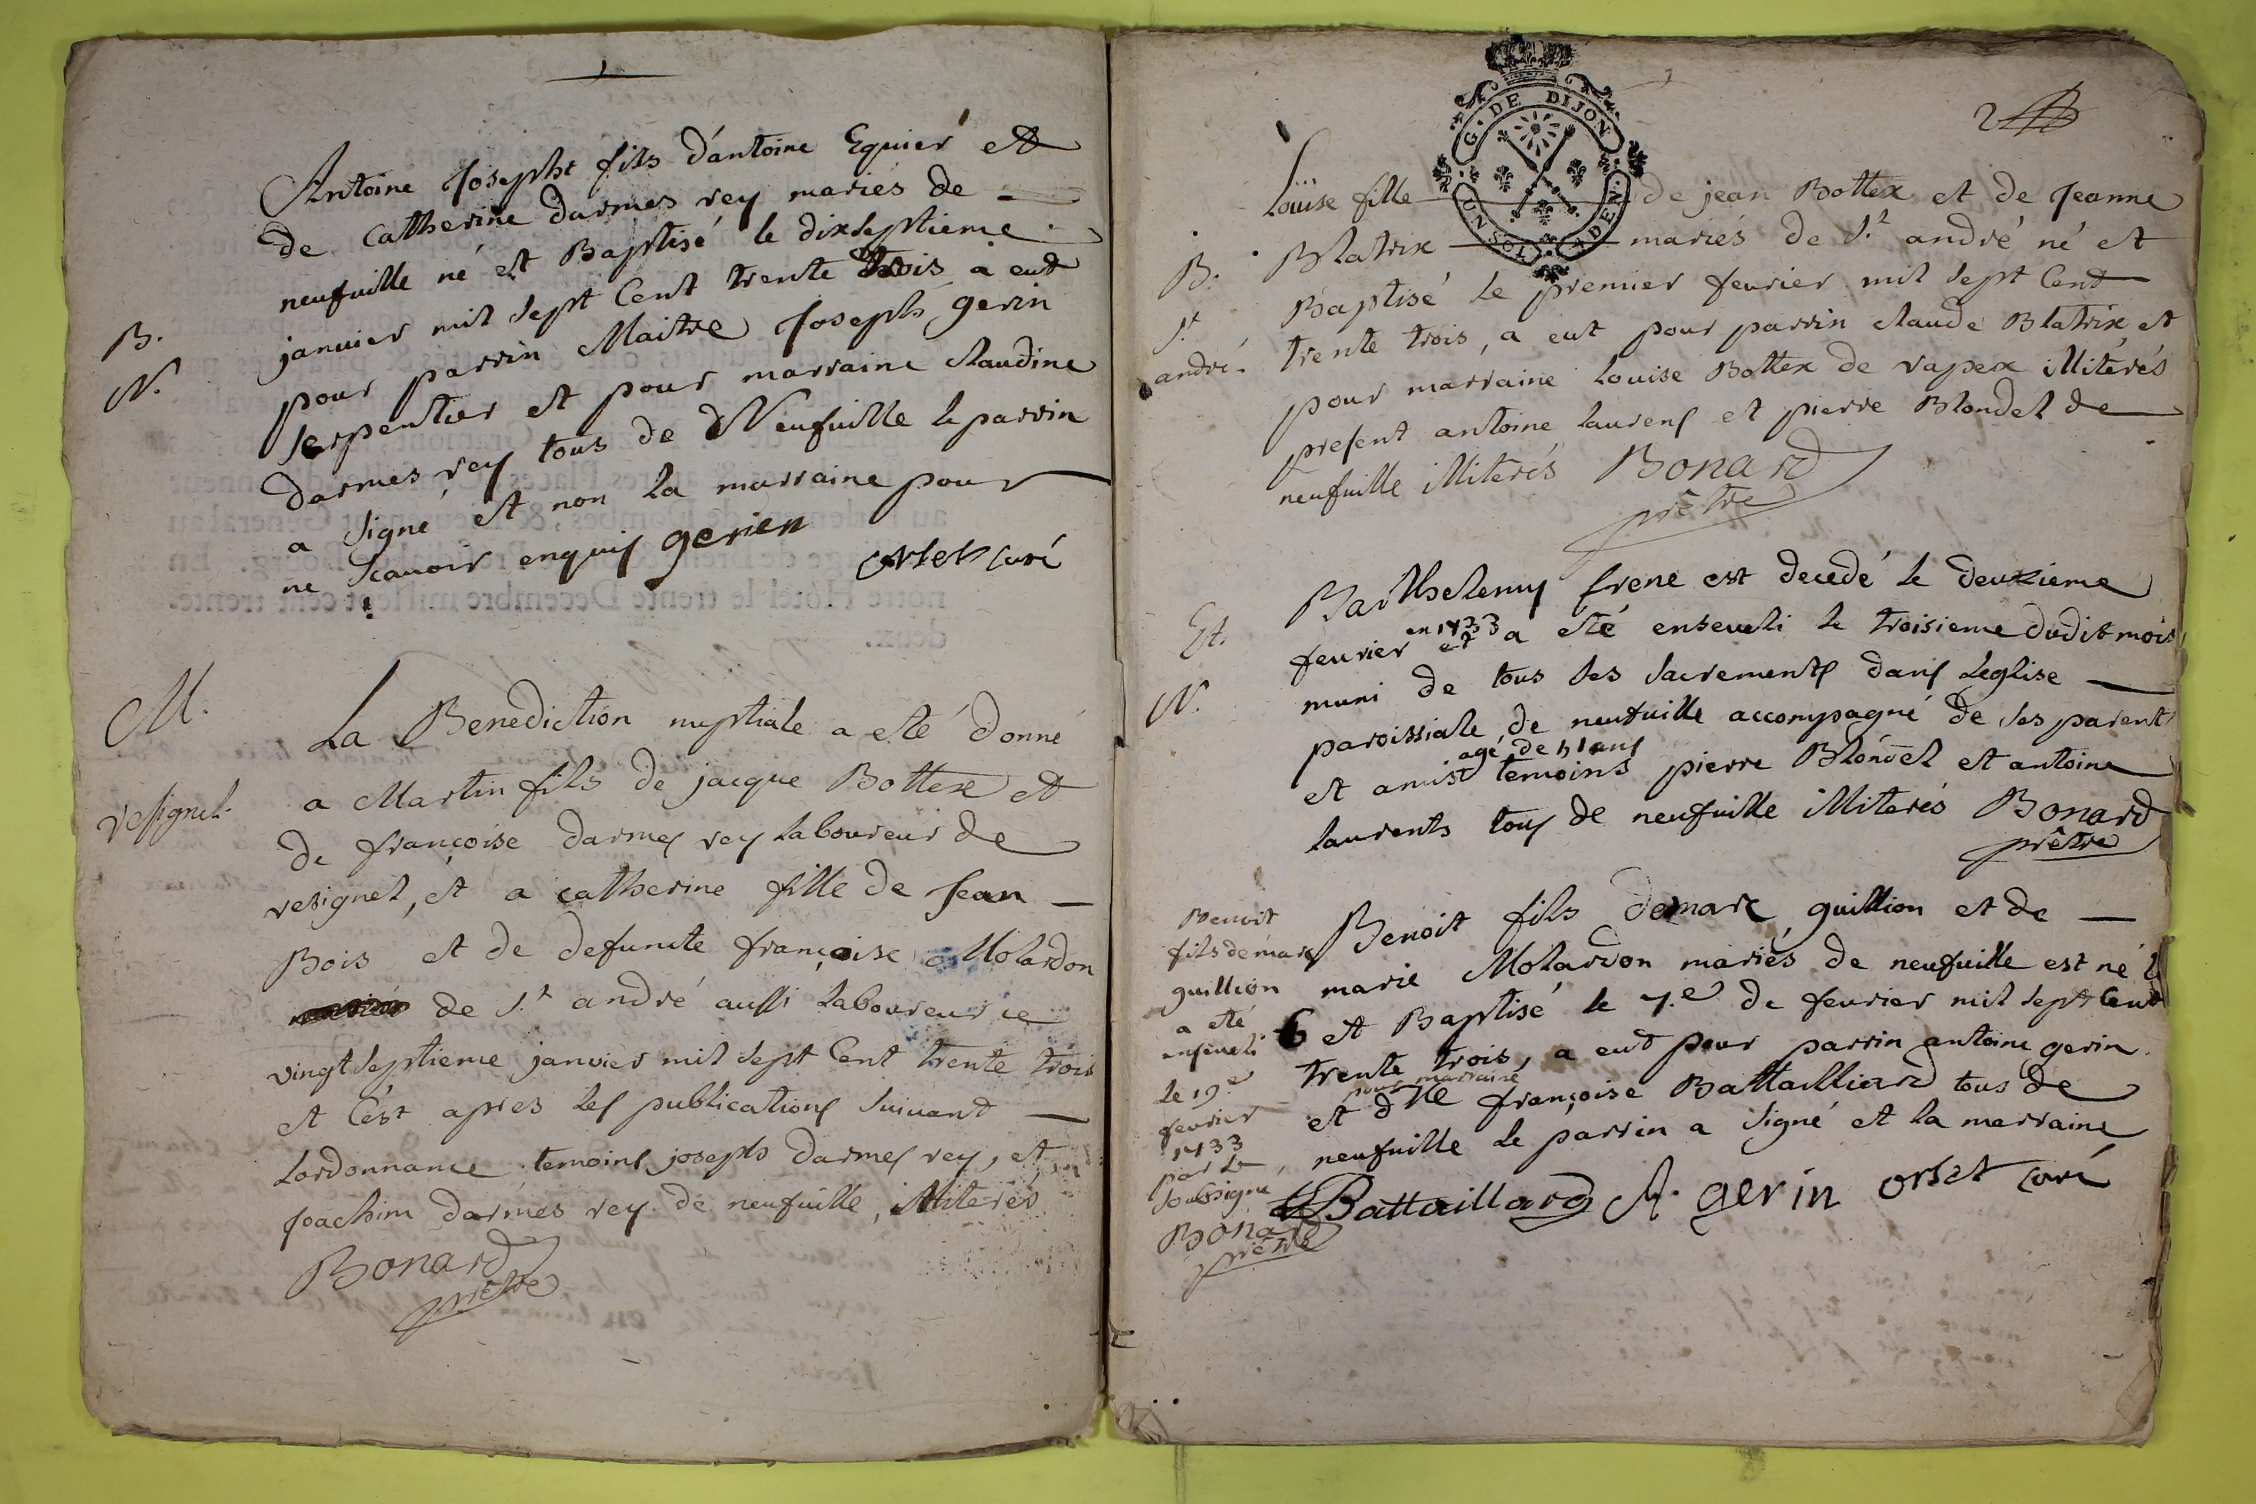 Antoine Joseph fils d'antoine Equier et
de Catherine darmes rey mariés de
neufuille né et Baptisé le dixseptieme
B.
janvier mil sept Cent trente trois a eut
N.
pour parrin Maitre Joseph gerin
serpentier et pour marraine claudine
darmes rey tous de Neufuille le parrin
a signé et non la marraine pour
ne scauoir enquis gerien
orset curé
M.
La Benediction nuptiale a eté donné
vesignel.
a Martin fils de jacque Bottex et
de françoise darmes rey laboureur de
vesignel, et a catherine fille de Jean
Bois et de defuncte françoise Molardon
de St andré aussi laboureur ce
vingt septieme janvier mil sept Cent trente trois
et c'est apres les publications suivant
Lordonnance temoins joseph darmes rey, et
Joachim darmes rey de neufuille, illiterés
Bonard
prêtre
2
G. DE DIJON
UN SOL
4 DEN.
Louise fille de jean Bottex et de Jeanne
B.
Blatrix mariés de St andré né et
Baptisé le premier feurier mil sept Cent
St
andré.
trente trois, a eut pour parrin claude Blatrix et
pour marraine Louise Bottex de vapex illiterés
present antoine laurens et pierre Blondel de
neufuille illiterés Bonard
prêtre
Et.
N.
Barthelemy frene est decedé le deuxieme
en 1733
feurier et a eté enseueli le troisieme dudit mois
muni de tous les sacrements dans Leglise
paroissiale de neufuille accompagné de ses parents
agé de 41 ans
et amis temoins pierre Blondel et antoine
laurents tous de neufuille illiterés Bonard
prêtre
Benoit
fils de marc
guillion
a eté
enseueli
le 19e
feurier
1733
par le
soubsigné
Bonard
prêtre
Benoit fils de marc guillion et de
marie Molardon mariés de neufuille est né le
6 et Baptisé le 7.e de feurier mil sept Cent
trente trois, a eut pour parrin antoine gerin
pour marraine
et dlle françoise Battailliard tous de
neufuille le parrin a signé et la marraine
Battaillard A. gerin orset curé